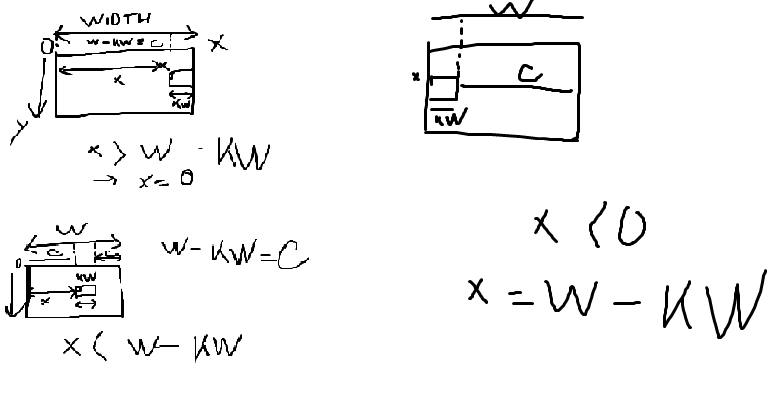 WIDTH
O
W-KW=C
X
x
KW
y
x > W - KW
→ x=0
W
C
x
KW
W
C C
0
KW
x
W-KW=C
x < W-KW
x < 0
x = W - KW